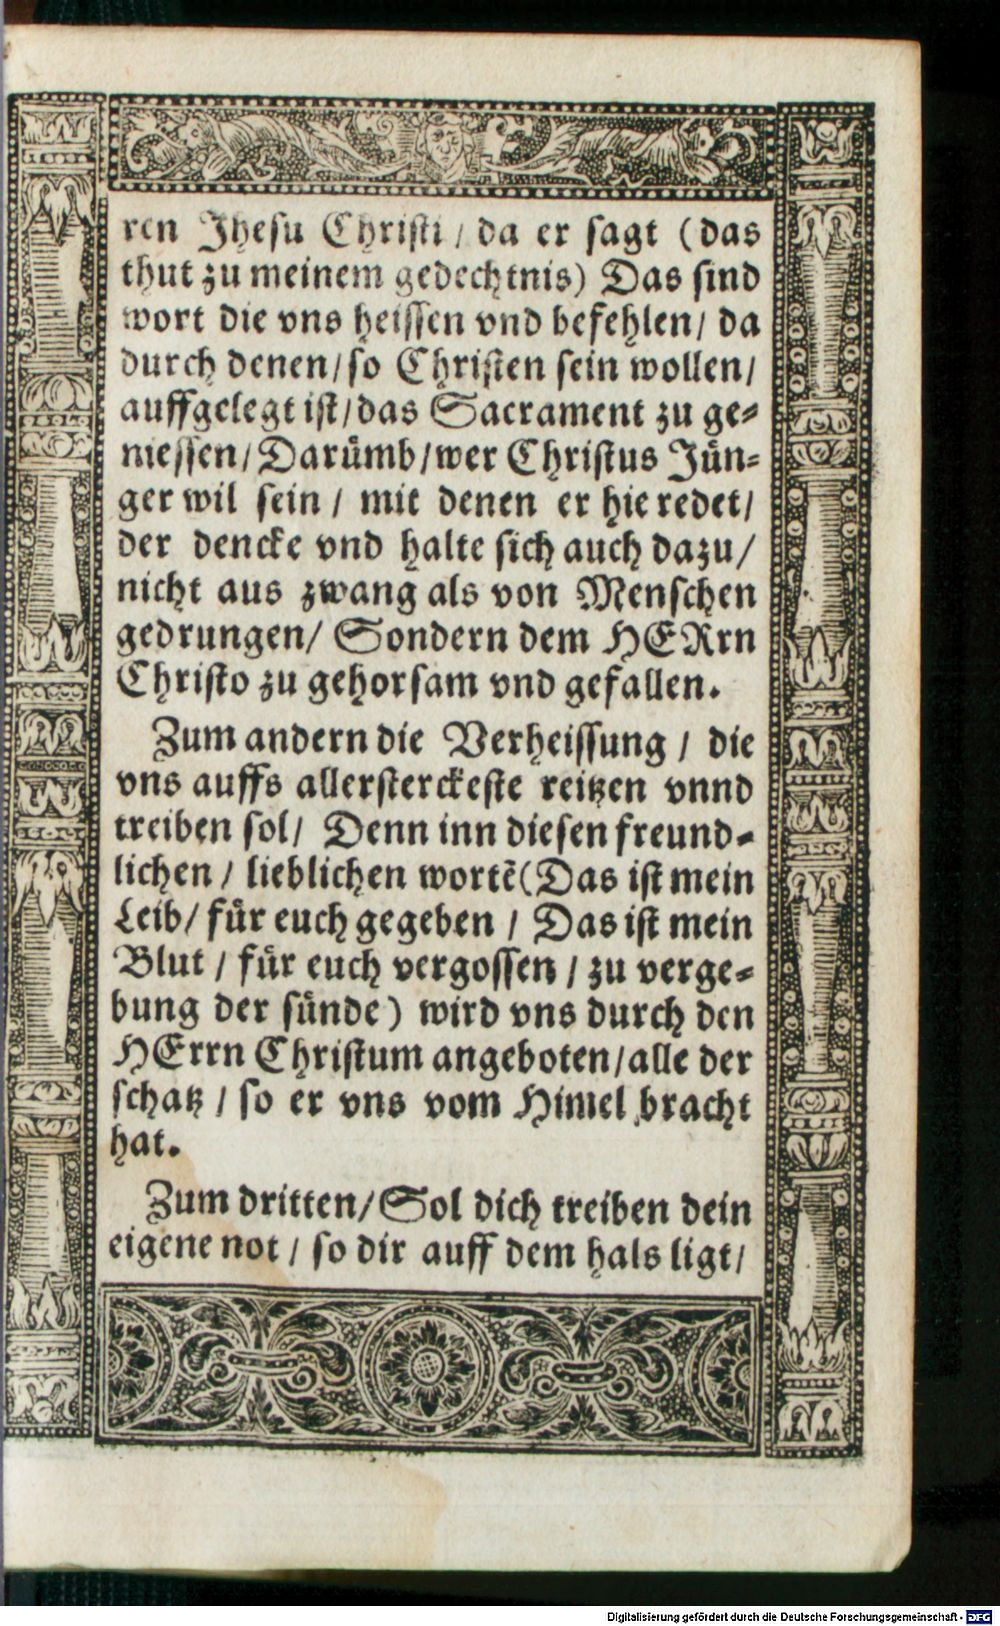 ren Jhesu Christi / da er sagt (das
thut zu meinem gedechtnis) Das sind
wort die vns heissen vnd befehlen / da
durch denen / so Christen sein wollen /
auffgelegt ist / das Sacrament zu ge⸗
niessen / Darümb / wer Christus Jün⸗
ger wil sein / mit denen er hie redet /
der dencke vnd halte sich auch dazu /
nicht aus zwang als von Menschen
gedrungen / Sondern dem HERrn
Christo zu gehorsam vnd gefallen.
Zum andern die Verheissung / die
vns auffs allersterckeste reitzen vnnd
treiben sol / Denn inn diesen freund⸗
lichen / lieblichen wortẽ (Das ist mein
Leib / für euch gegeben / Das ist mein
Blut / für euch vergossen / zu verge⸗
bung der sünde) wird vns durch den
HErrn Christum angeboten / alle der
schatz / so er vns vom Himel bracht
hat.
Zum dritten / Sol dich treiben dein
eigene not / so dir auff dem hals ligt /
Digitalisierung gefördert durch die Deutsche Forschungsgemeinschaft - DFG